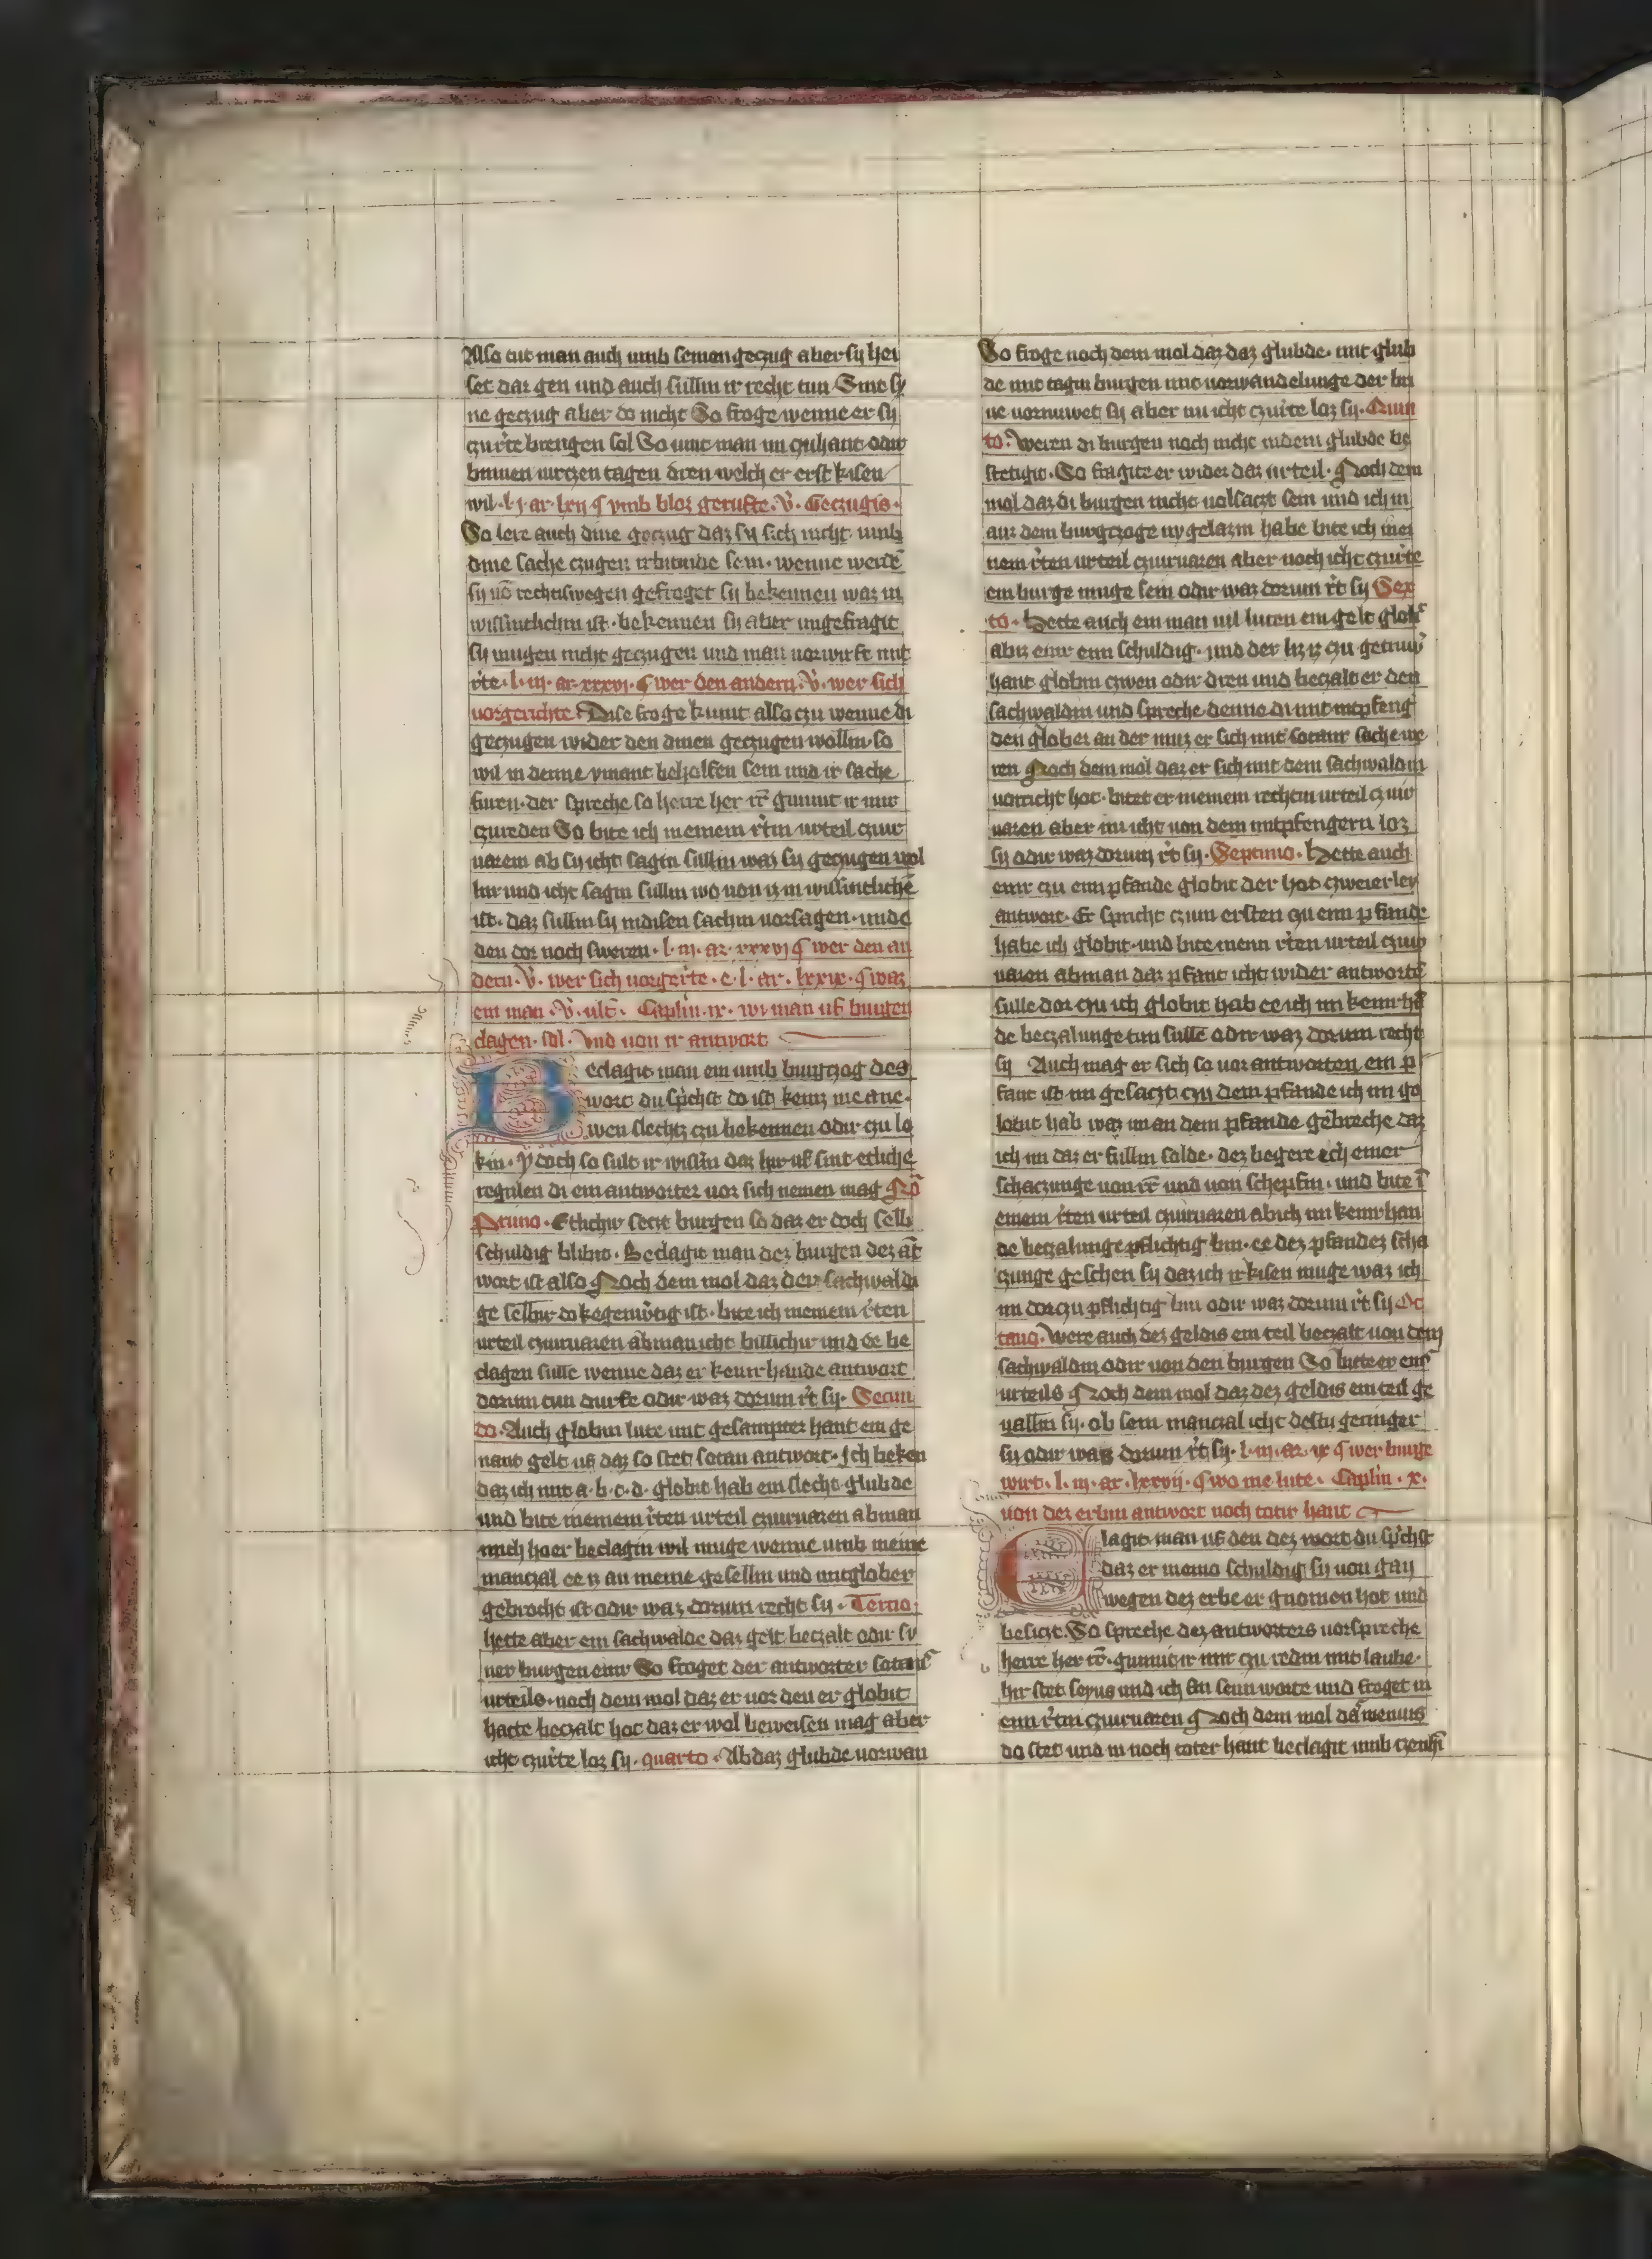 Also tut man auch umb semen geczug aber sy hei
set dar gen und auch sullin ir recht tun Sint sy
ne geczug aber do nicht So froge wenne er sy
czurte brengen sol So univ man im czuhant odir
binnen virczen tagen dren welch er erst kisen
wil · l · j · ar · lxij ¶ vmb bloz gerufte · v̇ · Geczugis ·
So lere auch dine geczug daz sy sich nicht umb
dine sache czugen irbitinde sein · wenne werdē
sy vō rechtiswegen gefroget sy bekennen waz in
wissintlichin ist · bekennen sy aber ungefragit
sy mugen nicht geczugen und man vorwirft mit
r̄te · l · iij · ar · xxxvj · ¶ wer den andern · v̇ · wer sich
vorgerichte · Dise froge kumt also czu wenne di
geczugen wider den dinen geczugen wollin so
wil in denne ymant beholfen sein und ir sache
furen · der spreche so herre her rr̄ gunnit ir mir
czureden So bite ich meinem r̄tin urteil czuir
varem ab sy icht sagin sullin waz sy geczugen wol
lin und icht sagin sullin wo von iz in wissintlichē
ist · daz sullin sy indisen sachin vorsagen · unde
den dor noch sweren · l · iij · ar · xxxvj ¶ wer den an
dern · v̇ · wer sich vorger̄te · e · l · ar · lxxix · ¶ waz
ein man · v̇ · ult̄ · Caplm · ix · wi man uf burgen
clagen · sol · Vnd von ir antwort
Beclagit man ein umb burgczog des
wort du sp̄chst do ist keinz me ane ·
wen slechtz czu bekennen odir czu lo
kin · ydoch so sult ir wissin daz hir uf sint etliche
regulen di ein antworter vor sich nemen mag Pō
Primo · Etlichir seczt burgen so daz er doch selb
schuldig blibit · Beclagit man dez burgen dez āt
wort ist also Noch dem mol daz der sachwaldi
ge selbir do kegenw̄tig ist · bite ich meinem r̄ten
urteil czuirvaren ab man icht billichir und ee be
clagen sulle wenne daz er keinr hande antwort
dorum tun durfe odir waz dorum r̄t sy · Secun
do · Auch globin lute mit gesampter hant ein ge
nant gelt uf daz so stet sotan antwort · Ich beken
daz ich mit a · b · c · d · globit hab ein slecht glubde
und bite meinem r̄ten urteil czuirvaren ab man
mich hoer beclagin wil muge wenne umb meine
manczal ee iz an meine gesellin und mitglober
gebrocht ist odir waz dorum recht sy · Tercio
hette aber ein sachwalde daz gelt beczalt odir sy
ner burgen einr So froget der antworter sotanis
urteils · noch dem mol daz er vor den er globit
hatte beczalt hot daz er wol beweisen mag aber
icht czur̄te loz sy · quarto · Ab daz glubde vorwan
So froge noch dem mol daz daz glubde · mit glub
de mit tagin burgen mit vorwandelunge der bri
ve vornuwet sy aber nu icht czur̄te loz sy · Quin
to · Weren di burgen noch nicht indem glubde be
stetigit · So fragite er wider daz urteil · Noch dem
mol daz di burgen nicht volsaczt sein und ich in
auz dem burgczoge ny gelazin habe bite ich mei
nem r̄ten urteil czuirvaren aber noch icht czur̄te
ein burge muge sein odir waz dorum r̄t sy Sex
to · Hette auch ein man vil luten ein gelt globt
abir einr ein schuldig · und der hiz iz czu getruwr
hant globin czwen odir dren und beczalt er den
sachwaldin und spreche denne di mitinpfeng
den glober an der muz er sich mit sotanr sache we
ren Noch dem mol daz er sich mit dem sachwaldin
vorricht hot · bitet er meinem rechtin urteil czuir
varen aber nu icht von dem mitpfengern loz
sy odir waz dorum r̄t sy · Septimo · Hette auch
einr czu einn pfande globit der hot czweierley
antwort · Er spricht czum ersten czu einn pfande
habe ich globit · und bite meinn r̄ten urteil czuir
varen ab man daz pfant icht wider antwortē
sulle dor czu ich globit hab ee ich im keinr hā
de beczalunge tun sulle odir waz dorum recht
sy Auch mag er sich so vor antworten ein p
fant ist im gesaczt czu dem pfande ich im ge
lobit hab waz im an dem pfande gebreche daz
ich im daz er fullin solde · dez begere ich einer
schaczunge von rr̄ und von schepfin · und bite ī
einem r̄ten urteil czuirvaren ab ich im keinr han
de beczalunge pflichtig bin · ee dez pfandez scha
czunge geschen sy daz ich irkisen muge waz ich
im dorczu pflichtig bin odir waz dorum r̄t sy Oc
tauo · Were auch dez geldis ein teil beczalt von dem
sachwaldin odir von den burgen So bitte er eins
urteils Noch dem mol daz dez geldis ein teil ge
vallin sy · ob sein manczal icht destu geringer
sy odir waz dorum r̄t sy · l · iij · ar · ix ¶ wer burge
wirt · l · iij · ar · lxxvij · ¶ wo me lute · Caplm · x ·
von dez erbin antwort noch totir hant
Clagit man uf den dez wort du sp̄chst
daz er meino schuldig sy von gan
wegen dez erbe er gnomen hot und
besiczt · So spreche dez antworters vorspreche
herre her rr̄ · gunnit ir mir czu redin mit laube ·
hir stet seyus und ich an seinn worte und froget in
einn r̄tin czuirvaren Noch dem mol daz meuius
do stet und in noch toter hant beclagit umb czenhī